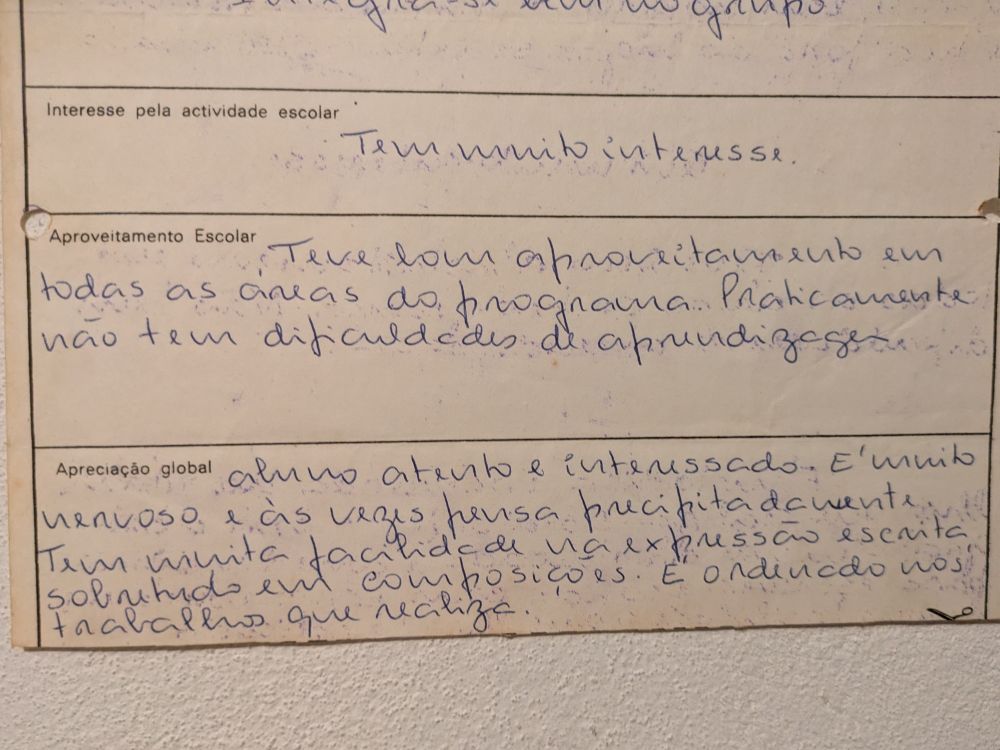 Integra-se bem no grupo.
Interesse pela actividade escolar
Tem muito interesse.
Aproveitamento Escolar
Teve bom aproveitamento em
todas as áreas do programa. Praticamente
não tem dificuldades de aprendizagem.
Apreciação global
aluno atento e interessado. E' muito
nervoso e às vezes pensa precipitadamente.
Tem muita facilidade na expressão escrita,
sobretudo em composições. E' ordenado nos
trabalhos que realiza.